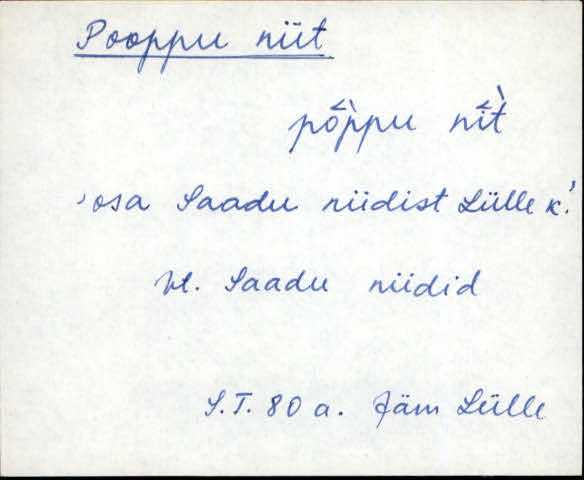 Pooppu niit
pő̀ppu nii̋̀t
'osa Saadu niidist Lülle k.'
vt. Saadu niidid
S.T. 80 a. Jäm Lülle